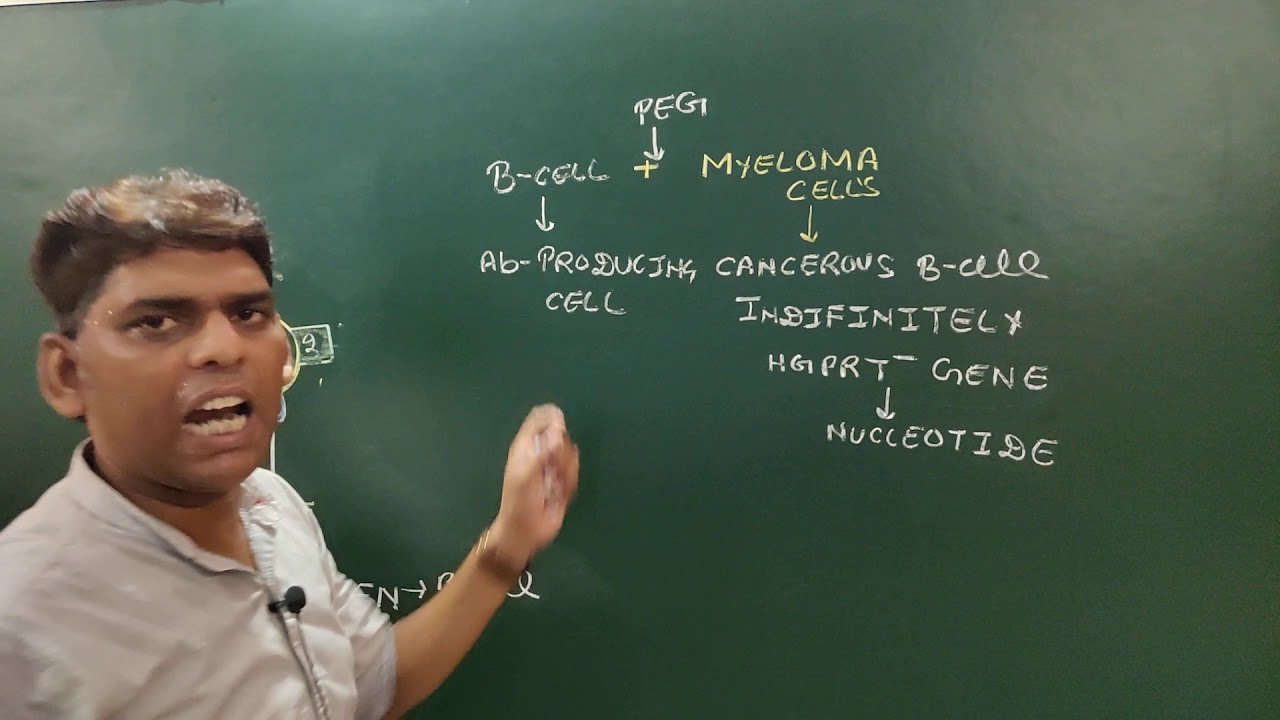 PEG
B-CELL + MYELOMA
CELL'S
Ab-PRODUCING CANCEROUS B-cell
CELL INDIFINITELY
HGPRT⁻ GENE
NUCLEOTIDE
2
EN→